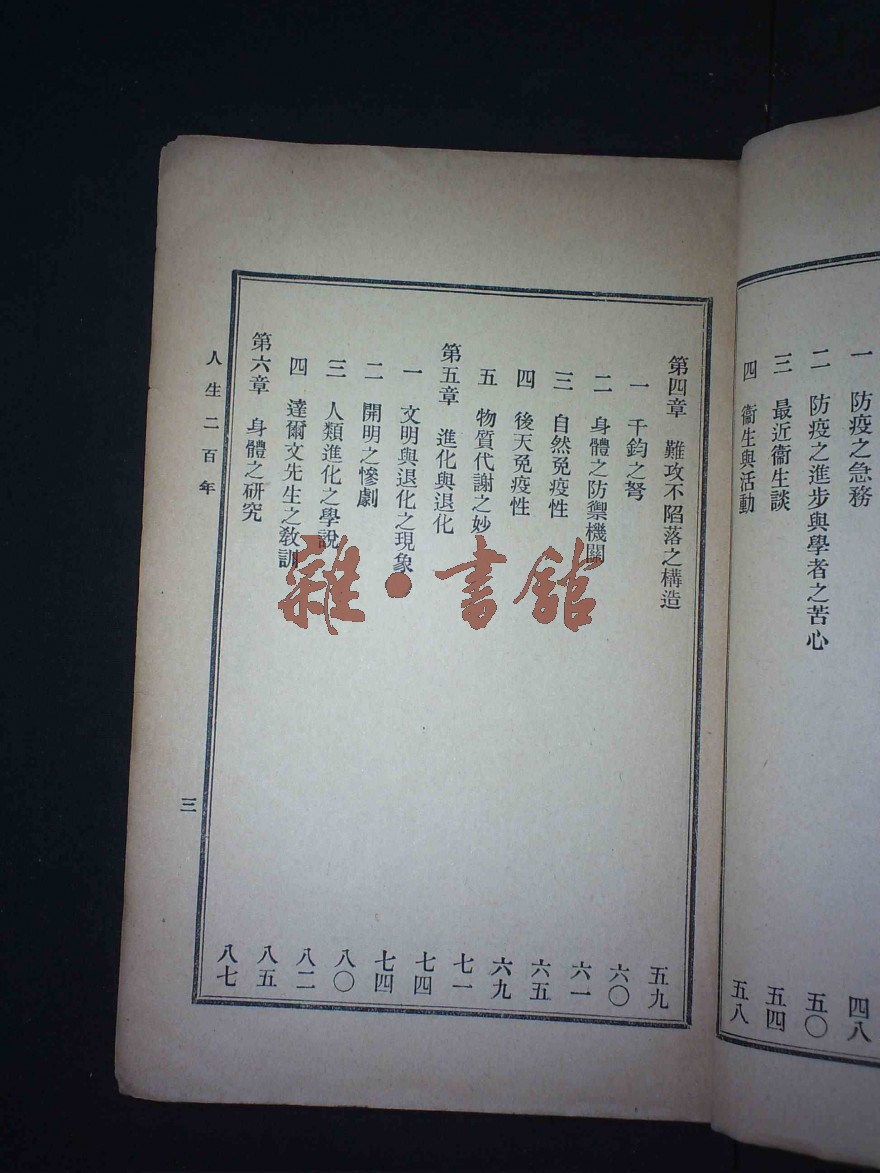 一　防疫之急務　四八
二　防疫之進步與學者之苦心　五〇
三　最近衞生談　五四
四　衞生與活動　五八
第四章　難攻不陷落之構造　五九
一　千鈞之弩　六〇
二　身體之防禦機關　六一
三　自然免疫性　六五
四　後天免疫性　六九
五　物質代謝之妙　七一
第五章　進化與退化　七四
一　文明與退化之現象　七四
二　開明之慘劇　八〇
三　人類進化之學說　八二
四　達爾文先生之敎訓　八五
第六章　身體之研究　八七
人生二百年　三
雜·書館